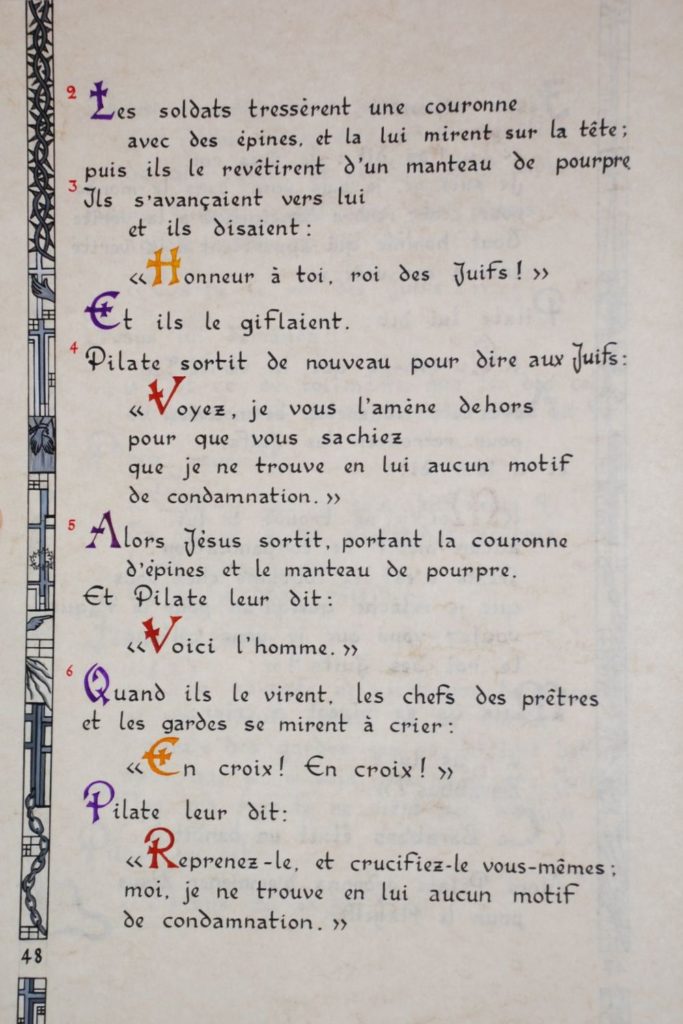 2 Les soldats tressèrent une couronne
avec des épines, et la lui mirent sur la tête ;
puis ils le revêtirent d'un manteau de pourpre
3 Ils s'avançaient vers lui
et ils disaient :
«Honneur à toi, roi des Juifs ! »
Et ils le giflaient.
4 Pilate sortit de nouveau pour dire aux Juifs :
«Voyez, je vous l'amène dehors
pour que vous sachiez
que je ne trouve en lui aucun motif
de condamnation. »
5 Alors Jésus sortit, portant la couronne
d'épines et le manteau de pourpre.
Et Pilate leur dit :
«Voici l'homme. »
6 Quand ils le virent, les chefs des prêtres
et les gardes se mirent à crier :
«En croix ! En croix ! »
Pilate leur dit :
«Reprenez-le, et crucifiez-le vous-mêmes ;
moi, je ne trouve en lui aucun motif
de condamnation. »
48